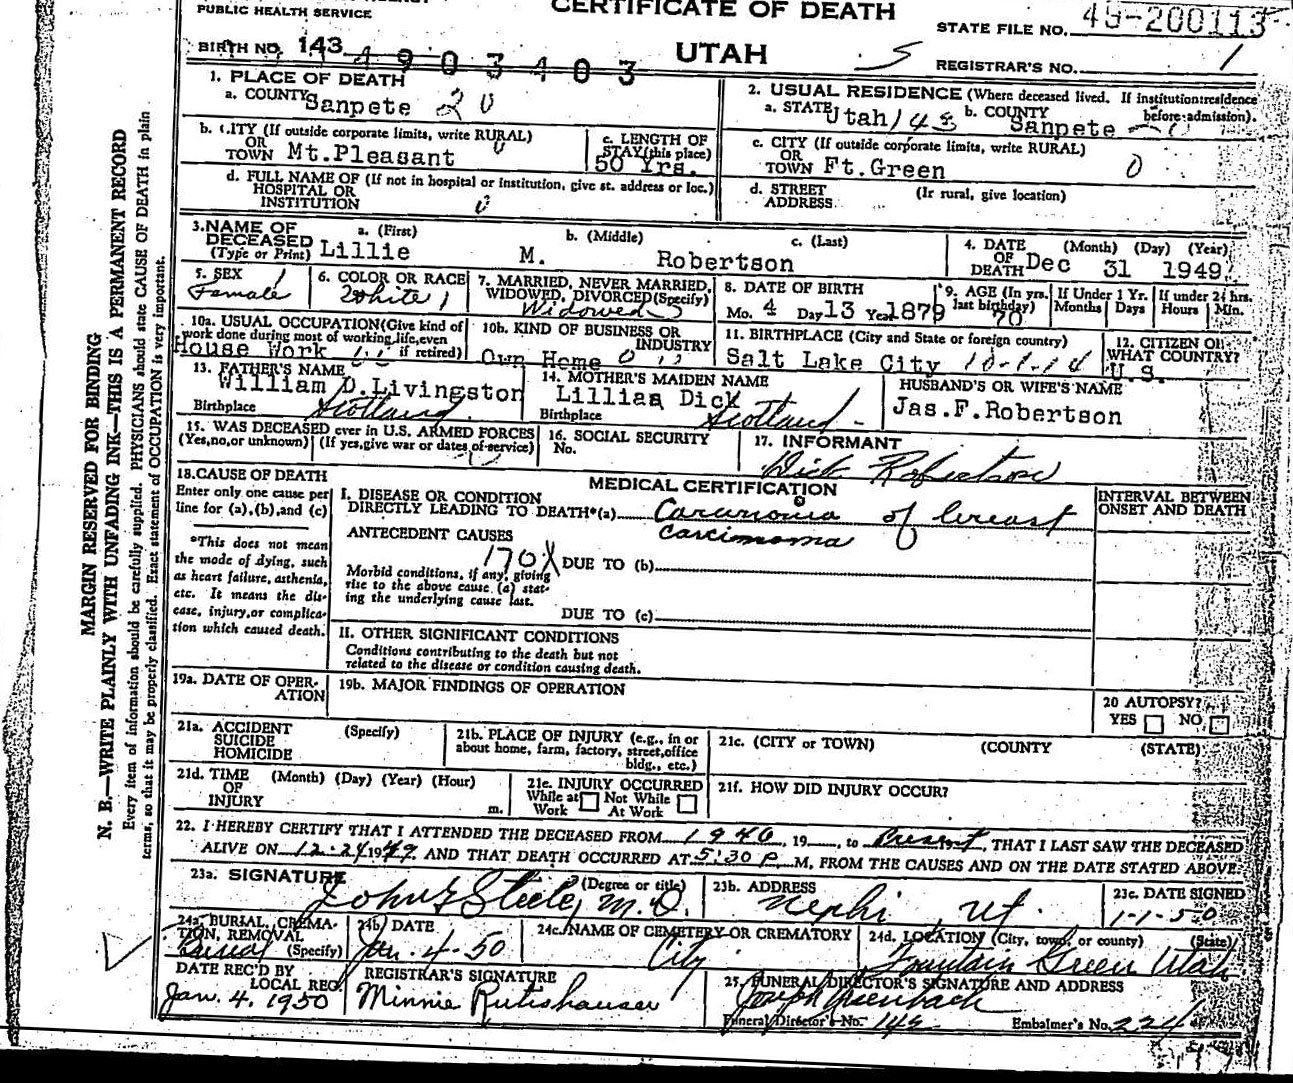 CERTIFICATE OF DEATH
PUBLIC HEALTH SERVICE
STATE FILE NO. 49-200113
BIRTH NO. 143 4903403
UTAH
REGISTRAR'S NO. 1
1. PLACE OF DEATH
a. COUNTY Sanpete 20
2. USUAL RESIDENCE (Where deceased lived. If institution: residence before admission).
a. STATE Utah 143 b. COUNTY Sanpete
b. CITY (If outside corporate limits, write RURAL) OR TOWN Mt.Pleasant
c. LENGTH OF STAY (this place) 50 Yrs.
c. CITY (If outside corporate limits, write RURAL) OR TOWN Ft.Green 0
d. FULL NAME OF (If not in hospital or institution, give st. address or loc.) HOSPITAL OR INSTITUTION
d. STREET ADDRESS (If rural, give location)
3. NAME OF DECEASED (Type or Print)
a. (First) b. (Middle) c. (Last)
Lillie M. Robertson
4. DATE OF DEATH (Month) (Day) (Year)
Dec 31 1949
5. SEX Female
6. COLOR OR RACE White
7. MARRIED, NEVER MARRIED, WIDOWED, DIVORCED (Specify) Widowed
8. DATE OF BIRTH
Mo. 4 Day 13 Year 1879
9. AGE (In yrs. last birthday) 70
If Under 1 Yr. Months Days
If under 24 hrs. Hours Min.
10a. USUAL OCCUPATION (Give kind of work done during most of working life, even if retired) House Work
10b. KIND OF BUSINESS OR INDUSTRY Own Home
11. BIRTHPLACE (City and State or foreign country)
Salt Lake City
12. CITIZEN OF WHAT COUNTRY? U.S.
13. FATHER'S NAME
William D. Livingston
Birthplace Scotland
14. MOTHER'S MAIDEN NAME
Lillias Dick
Birthplace Scotland
HUSBAND'S OR WIFE'S NAME
Jas.F.Robertson
15. WAS DECEASED ever in U.S. ARMED FORCES
(Yes, no, or unknown) (If yes, give war or dates of service)
16. SOCIAL SECURITY No.
17. INFORMANT
Dick Robertson
18. CAUSE OF DEATH
Enter only one cause per line for (a), (b), and (c)
*This does not mean the mode of dying, such as heart failure, asthenia, etc. It means the disease, injury, or complication which caused death.
MEDICAL CERTIFICATION
INTERVAL BETWEEN ONSET AND DEATH
I. DISEASE OR CONDITION
DIRECTLY LEADING TO DEATH*(a) Carcinoma of breast
carcinoma
ANTECEDENT CAUSES
170X
DUE TO (b)
Morbid conditions, if any, giving rise to the above cause (a) stating the underlying cause last.
DUE TO (c)
II. OTHER SIGNIFICANT CONDITIONS
Conditions contributing to the death but not related to the disease or condition causing death.
19a. DATE OF OPERATION
19b. MAJOR FINDINGS OF OPERATION
20 AUTOPSY?
YES NO
21a. ACCIDENT SUICIDE HOMICIDE (Specify)
21b. PLACE OF INJURY (e.g., in or about home, farm, factory, street, office bldg., etc.)
21c. (CITY or TOWN) (COUNTY) (STATE)
21d. TIME OF INJURY (Month) (Day) (Year) (Hour) m.
21e. INJURY OCCURRED
While at Work Not While At Work
21f. HOW DID INJURY OCCUR?
22. I HEREBY CERTIFY THAT I ATTENDED THE DECEASED FROM 1946, 19 , to Present, THAT I LAST SAW THE DECEASED
ALIVE ON 12-24 1949. AND THAT DEATH OCCURRED AT 5:30 P. M, FROM THE CAUSES AND ON THE DATE STATED ABOVE.
23a. SIGNATURE (Degree or title)
John G Steele, M.D.
23b. ADDRESS
Nephi, Ut.
23c. DATE SIGNED
1-1-50
24a. BURIAL, CREMATION, REMOVAL (Specify) Burial
24b. DATE
Jan. 4-50
24c. NAME OF CEMETERY OR CREMATORY
City
24d. LOCATION (City, town, or county) (State)
Fountain Green Utah
DATE REC'D BY LOCAL REG.
Jan. 4. 1950
REGISTRAR'S SIGNATURE
Minnie Rutishauser
25. FUNERAL DIRECTOR'S SIGNATURE AND ADDRESS
Funeral Director's No. 145 Embalmer's No. 224
MARGIN RESERVED FOR BINDING
N. B.—WRITE PLAINLY WITH UNFADING INK—THIS IS A PERMANENT RECORD
Every item of information should be carefully supplied. PHYSICIANS should state CAUSE OF DEATH in plain
terms, so that it may be properly classified. Exact statement of OCCUPATION is very important.